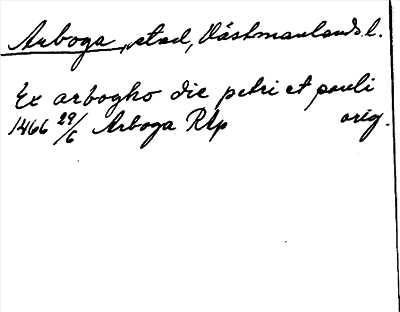 Arboga, stad, Västmanlands l.
Ex arbogho die petri et pauli
1466 29/6 Arboga RAp orig.